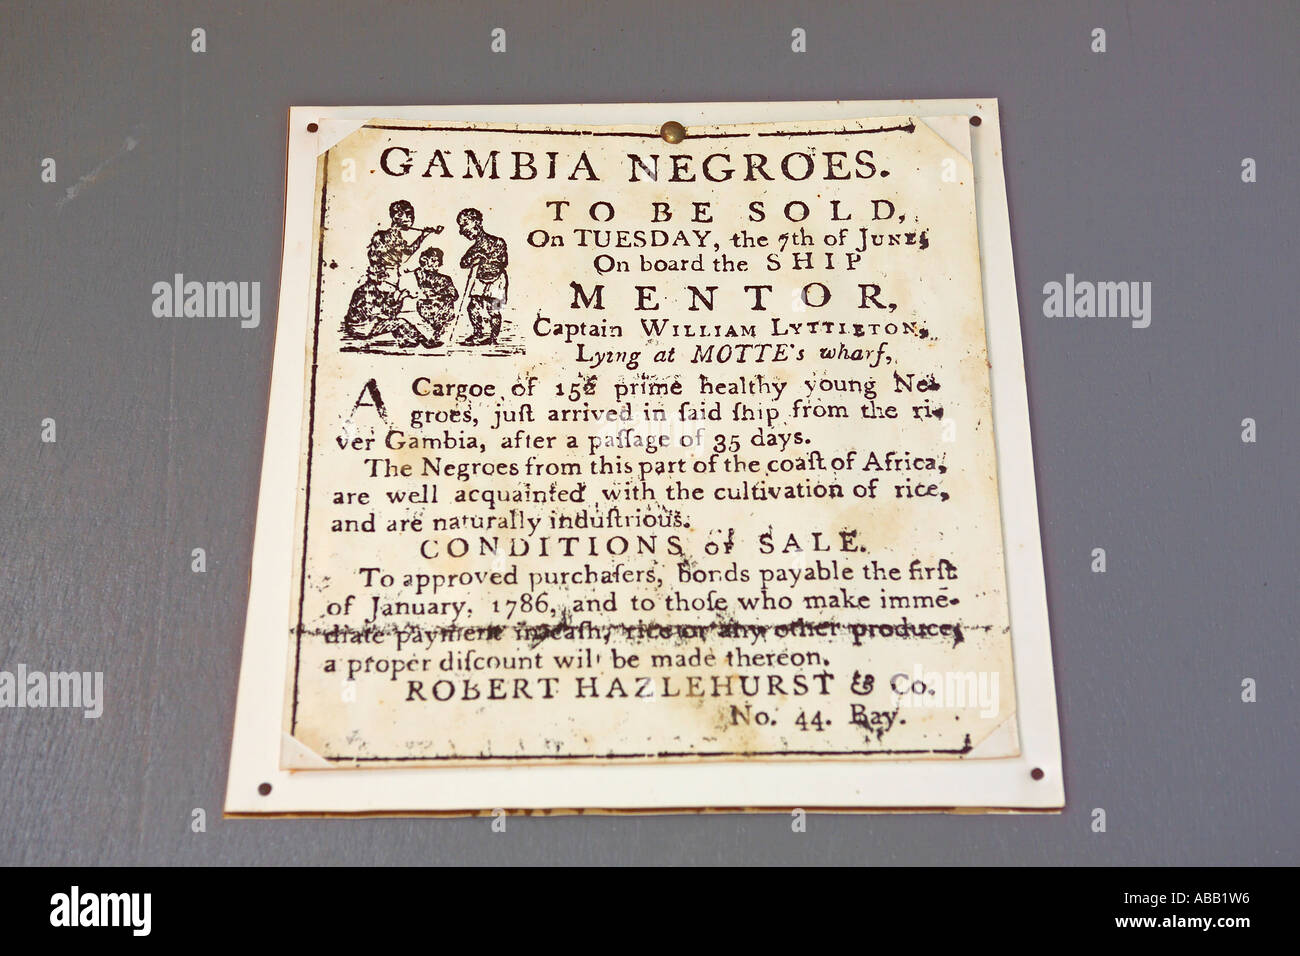 GAMBIA NEGROES.
TO BE SOLD,
On TUESDAY, the 7th of JUNE,
On board the SHIP
MENTOR,
Captain WILLIAM LYTTLETON,
Lying at MOTTE's wharf,
A Cargoe of 152 prime healthy young Ne-
groes, juſt arrived in ſaid ſhip from the ri-
ver Gambia, after a paſſage of 35 days.
The Negroes from this part of the coaſt of Africa,
are well acquainted with the cultivation of rice,
and are naturally induſtrious.
CONDITIONS of SALE.
To approved purchaſers, bonds payable the firſt
of January, 1786, and to thoſe who make imme-
diate payment in caſh, rice or any other produce,
a proper diſcount will be made thereon.
ROBERT HAZLEHURST & Co.
No. 44. Bay.
alamy
alamy
alamy
alamy
alamy
alamy
Image ID: ABB1W6
www.alamy.com